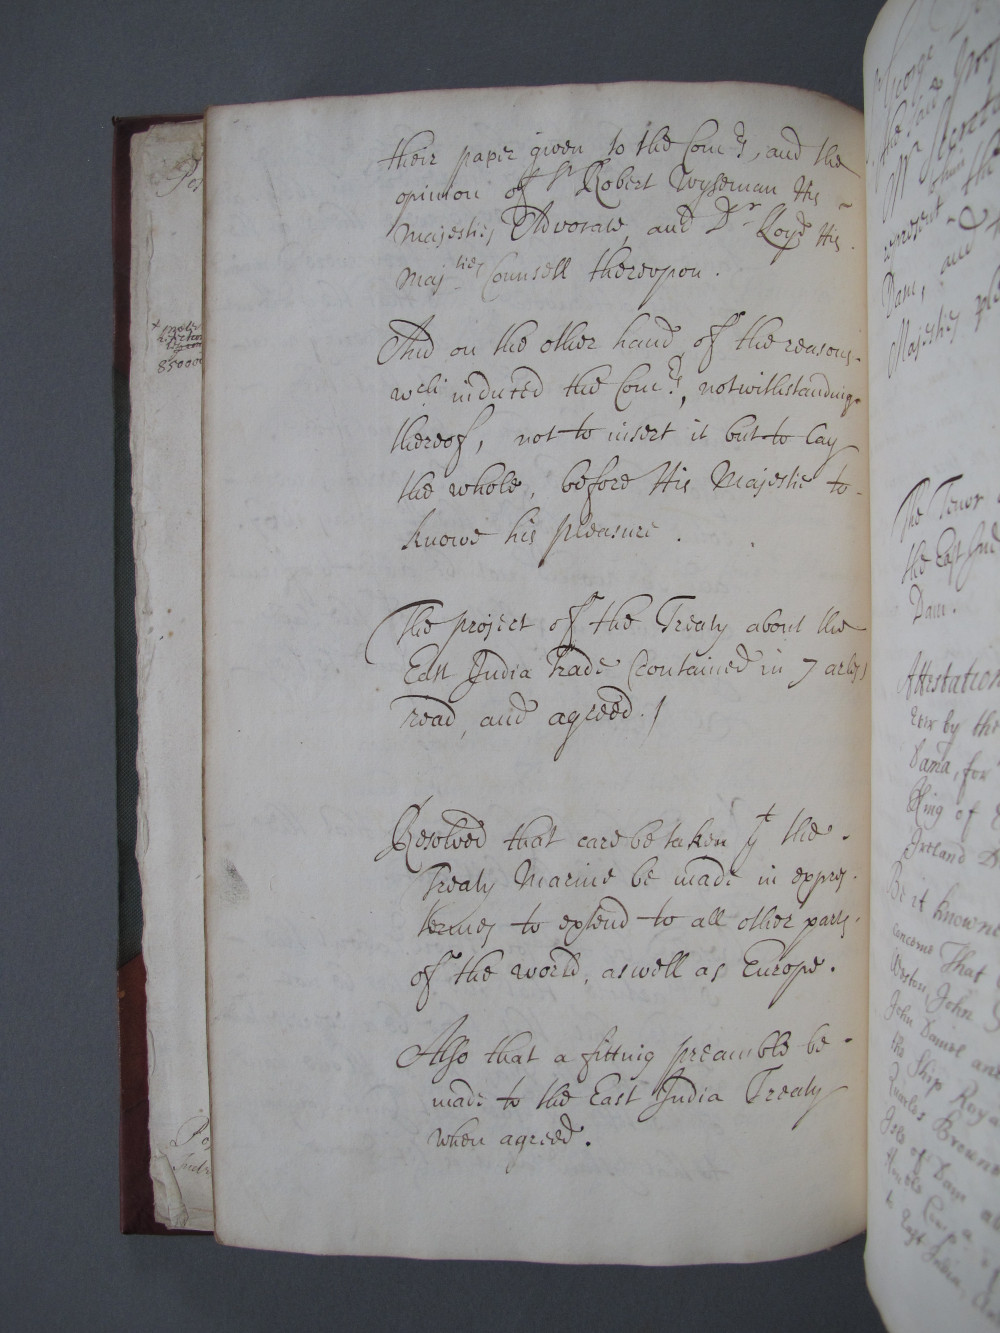 their paper given to the Com.rs, and the
opinion of Sr Robert Wyseman His
Majesties Advocate, and Dr Loyd His
Majties Counsell thereupon.
And on the other hand, of the reasons
wch induced the Com.rs, notwithstanding
thereof, not to insert it but to lay
the whole, before His Majestie to
knowe his pleasure.
The project of the Treaty about the
East India Trade (contained in 7 artes)
read, and agreed./
Resolved that care be taken yt the
Treaty Marine be made in expres
termes to extend to all other parts
of the world, aswell as Europe.
Also that a fitting preamble be
made to the East India Treaty
when agreed.
85000
Sr George
the said
Mr
represent
Dam, and
Majesties
The Tenor
the East Ind
Dam.
Attestation
by the
Dama, for
King of
Ireland
Be it knowne
concerne That
Weston, John
John Daniel and
the Ship Roya
Quarles Browne
Isle of Dam
Honble Comp.a
to East India,